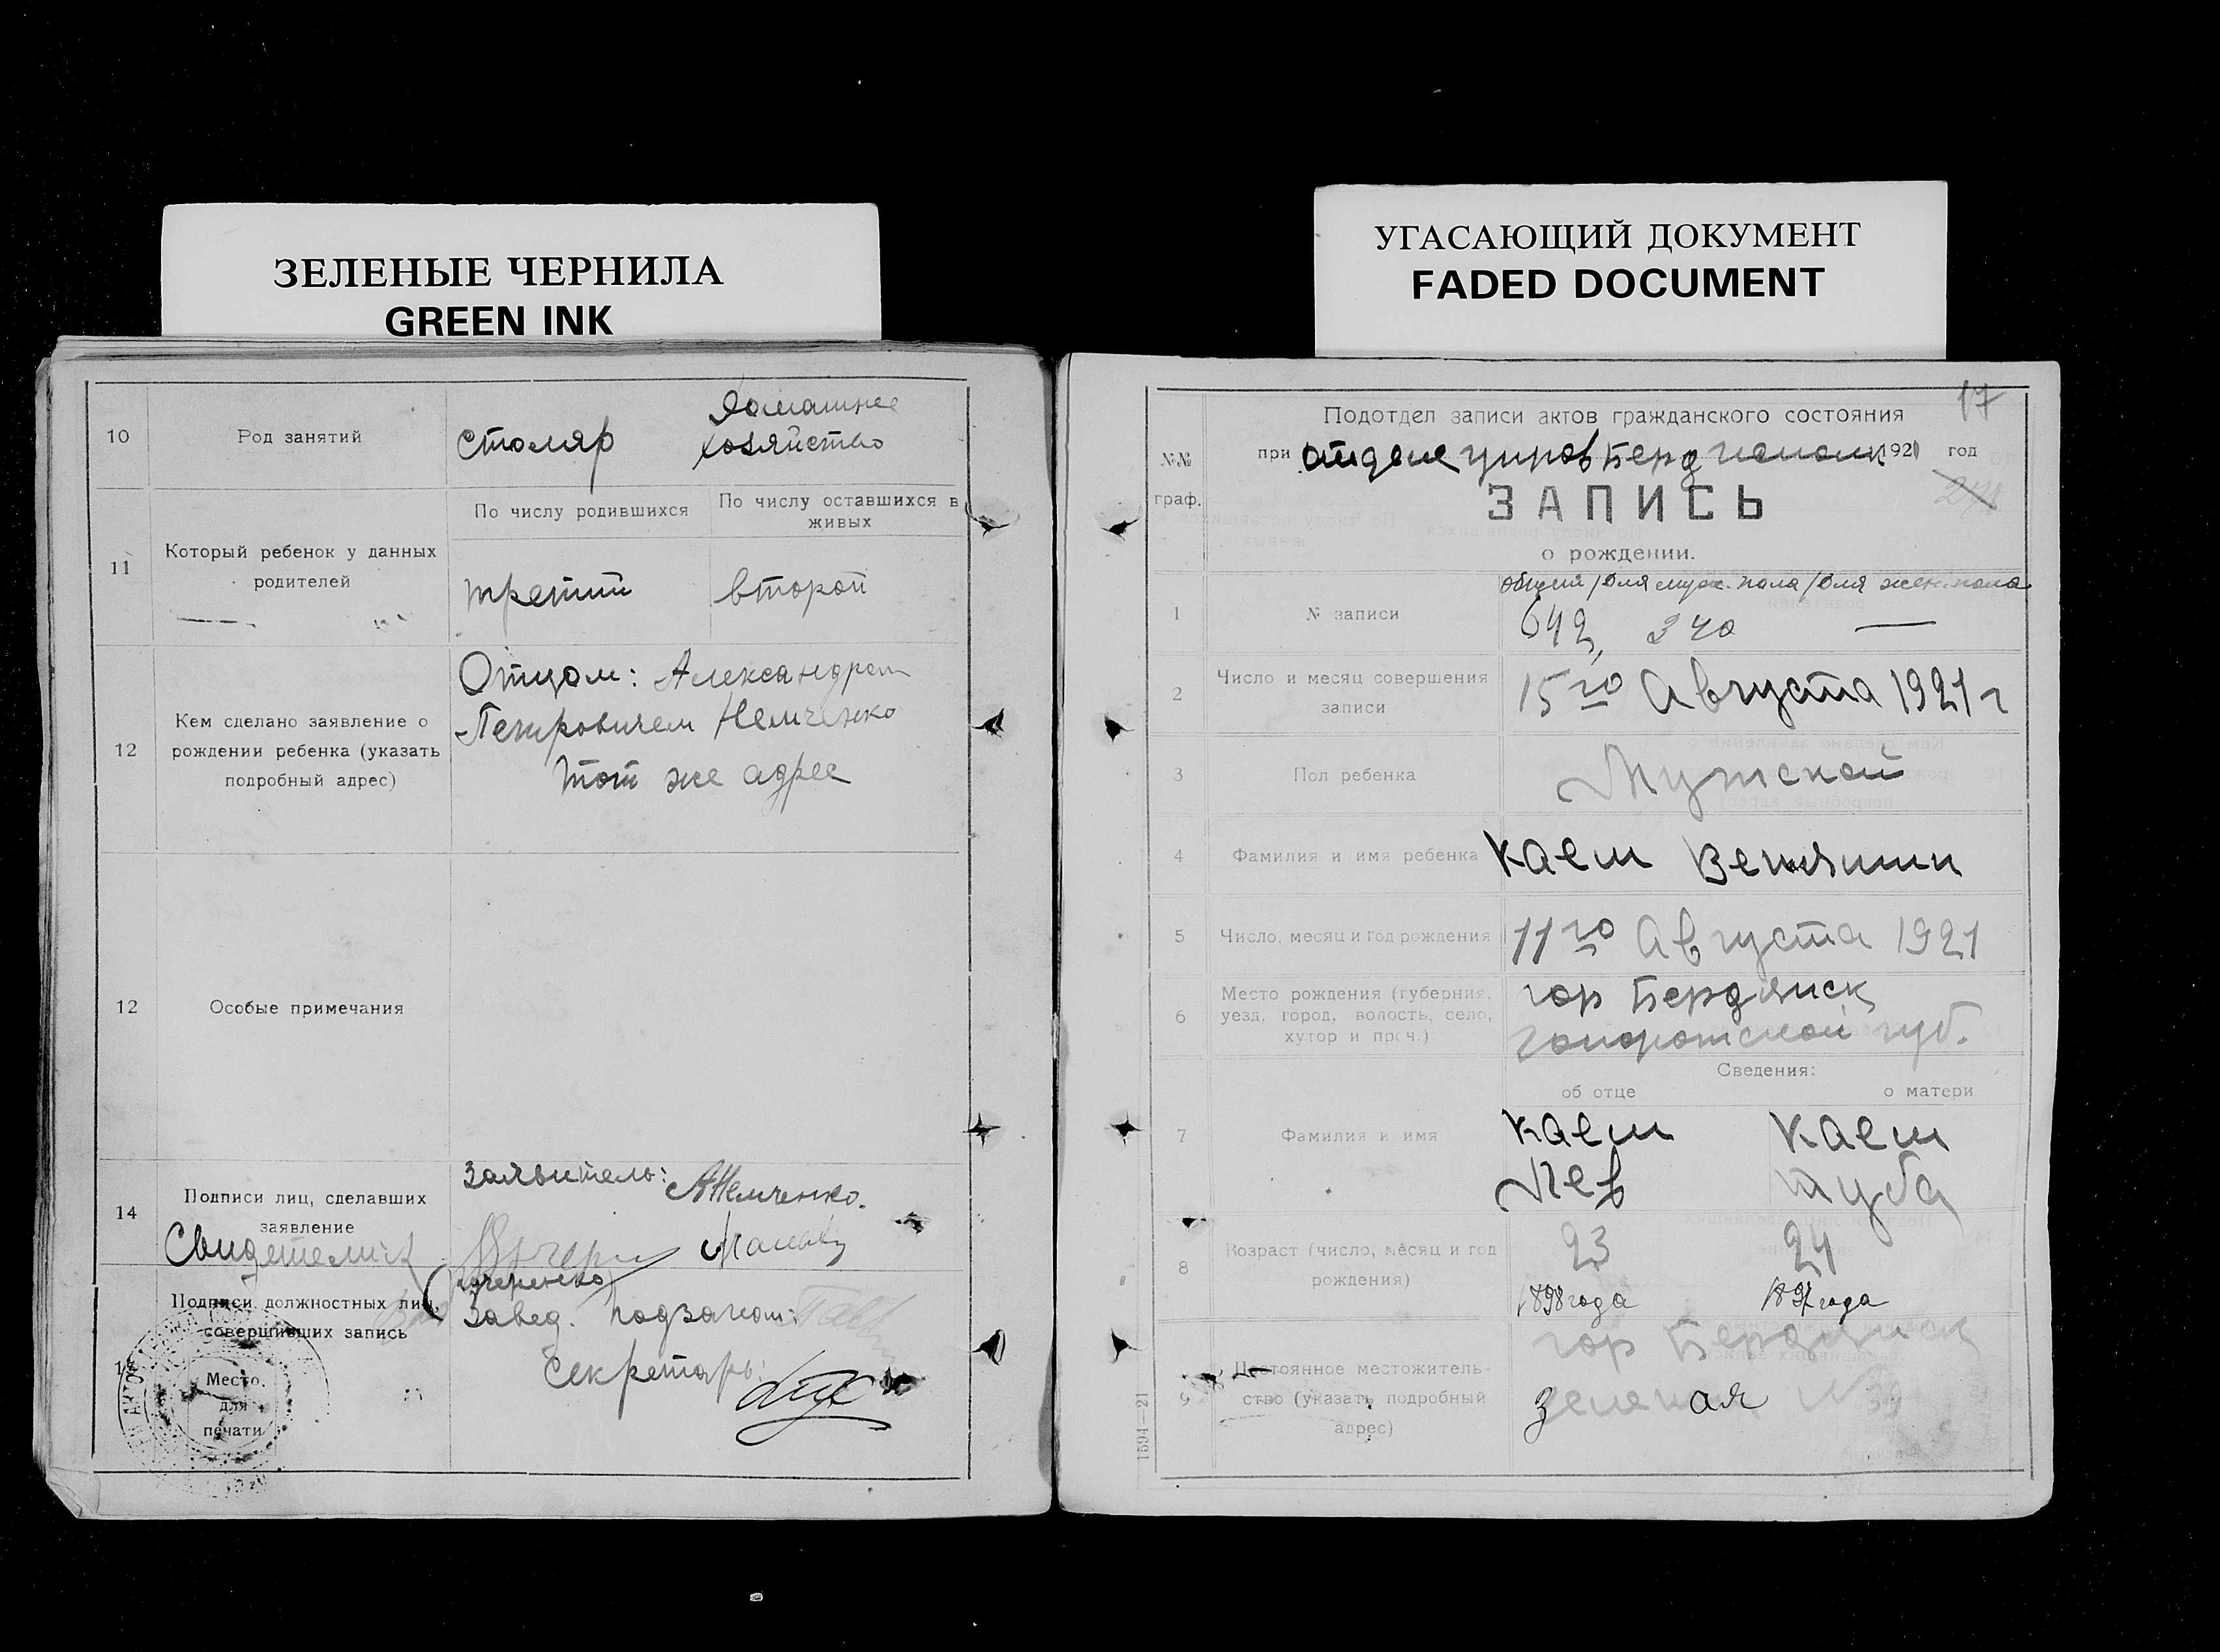 ЗЕЛЕНЫЕ ЧЕРНИЛА
GREEN INK
10
Род занятий
Столяр
Домашнее
хозяйство
11
Который ребенок у данных
родителей
По числу родившихся
По числу оставшихся в
живых
третий
второй
12
Кем сделано заявление о
рождении ребенка (указать
подробный адрес)
Отцом: Александром
Петровичем Немченко
тот же адрес
12
Особые примечания
14
Подписи лиц, сделавших
заявление
Свидетели
Заявитель: АНемченко.
Подписи должностных лиц,
совершивших запись
Завед. подзагом:
Секретарь:
Место
для
печати
УГАСАЮЩИЙ ДОКУМЕНТ
FADED DOCUMENT
17
Подотдел записи актов гражданского состояния
№№
граф.
при отделе управ Берд исполк 1921 год
ЗАПИСЬ
о рождении.
общий / для муж. пола / для жен. пола
1
№ записи
642, 340 —
2
Число и месяц совершения
записи
15го Августа 1921 г
3
Пол ребенка
Мужской
4
Фамилия и имя ребенка
Каем Веньямин
5
Число, месяц и год рождения
11го Августа 1921
6
Место рождения (губерния,
уезд, город, волость, село,
хутор и проч.)
гор Бердянск
губ.
Сведения:
об отце
о матери
7
Фамилия и имя
Каем
Лев
Каем
Туба
8
Возраст (число, месяц и год
рождения)
23
1898 года
24
1897 года
9
Постоянное местожитель-
ство (указать подробный
адрес)
гор Бердянск
Зеленая № 39
1594—21